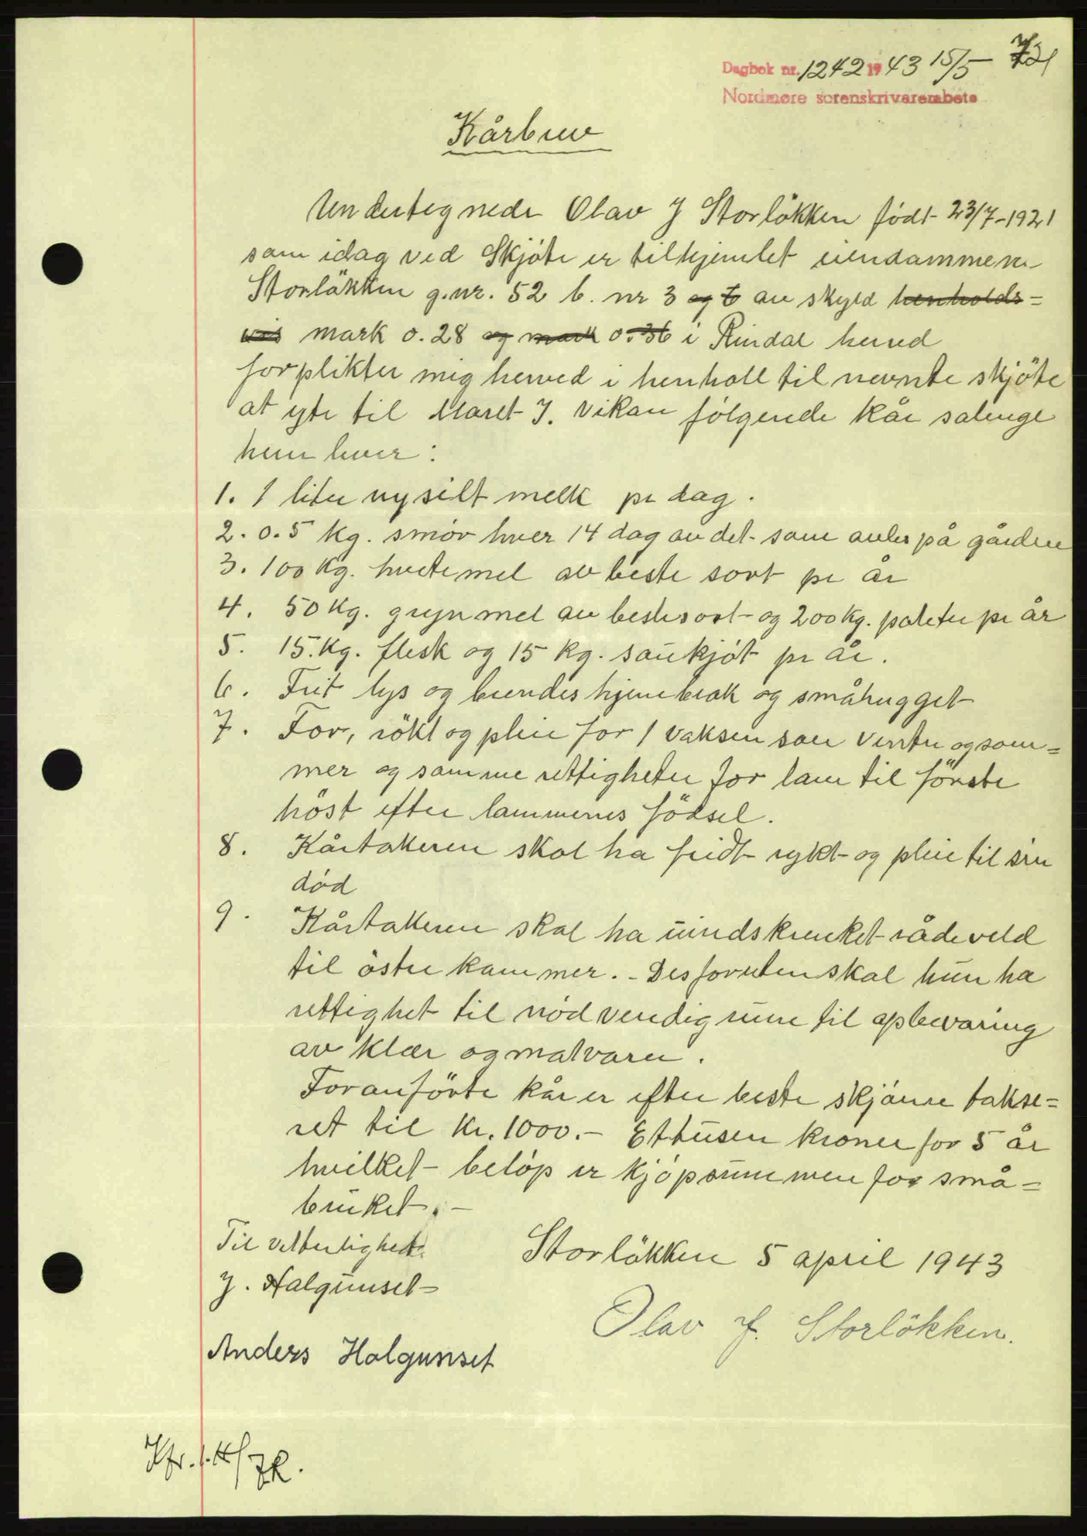 Dagbok nr. 1242 1943 15/5
Nordmøre sorenskriverembete
721
Kårbrev
Undertegnede Olav J Storlökken födt 23/7-1921
som idag ved Skjöte er tilhjemlet eiendammene
Storlökken g.nr. 52 b. nr 3 og 6 av skyld henholds=
vis mark 0.28 og mark 0.36 i Rindal herred
forplikter mig herved i henholl til nevnte skjöte
at yte til Maret J. Vikan fölgende kår salenge
hun lever:
1. 1 liter nysilt melk pr dag.
2. 0.5 kg. smör hver 14 dag av det som avles på gården
3. 100 kg. hvetemel av beste sort pr år
4. 50 kg. grynmel av beste sort og 200 kg. poteter pr år
5. 15. kg. flesk og 15 kg. saukjöt pr år.
6. Frit lys og brendes hjembrak og småhugget
7. For, rökt og pleie for 1 vaksen sau vinter og som=
mer og samme rettigheter for lam til förste
höst efter lammenes födsel.
8. Kårtakeren skal ha fridt rykt og pleie til sin
död
9. Kårtakeren skal ha uindskrenket rådeveld
til östre kammer. - Desforuten skal hun ha
rettighet til nödvendig rum til opbevaring
av klær og matvarer.
Foranförte kår er efter beste skjönn takse=
ret til kr. 1000.- Ettusen kroner for 5 år
hvilket belöp er kjöpsummen for små=
bruket. -
Til vitterlighet
Storlökken 5 april 1943
J. Halgunset
Olav J. Storlökken.
Anders Halgunset